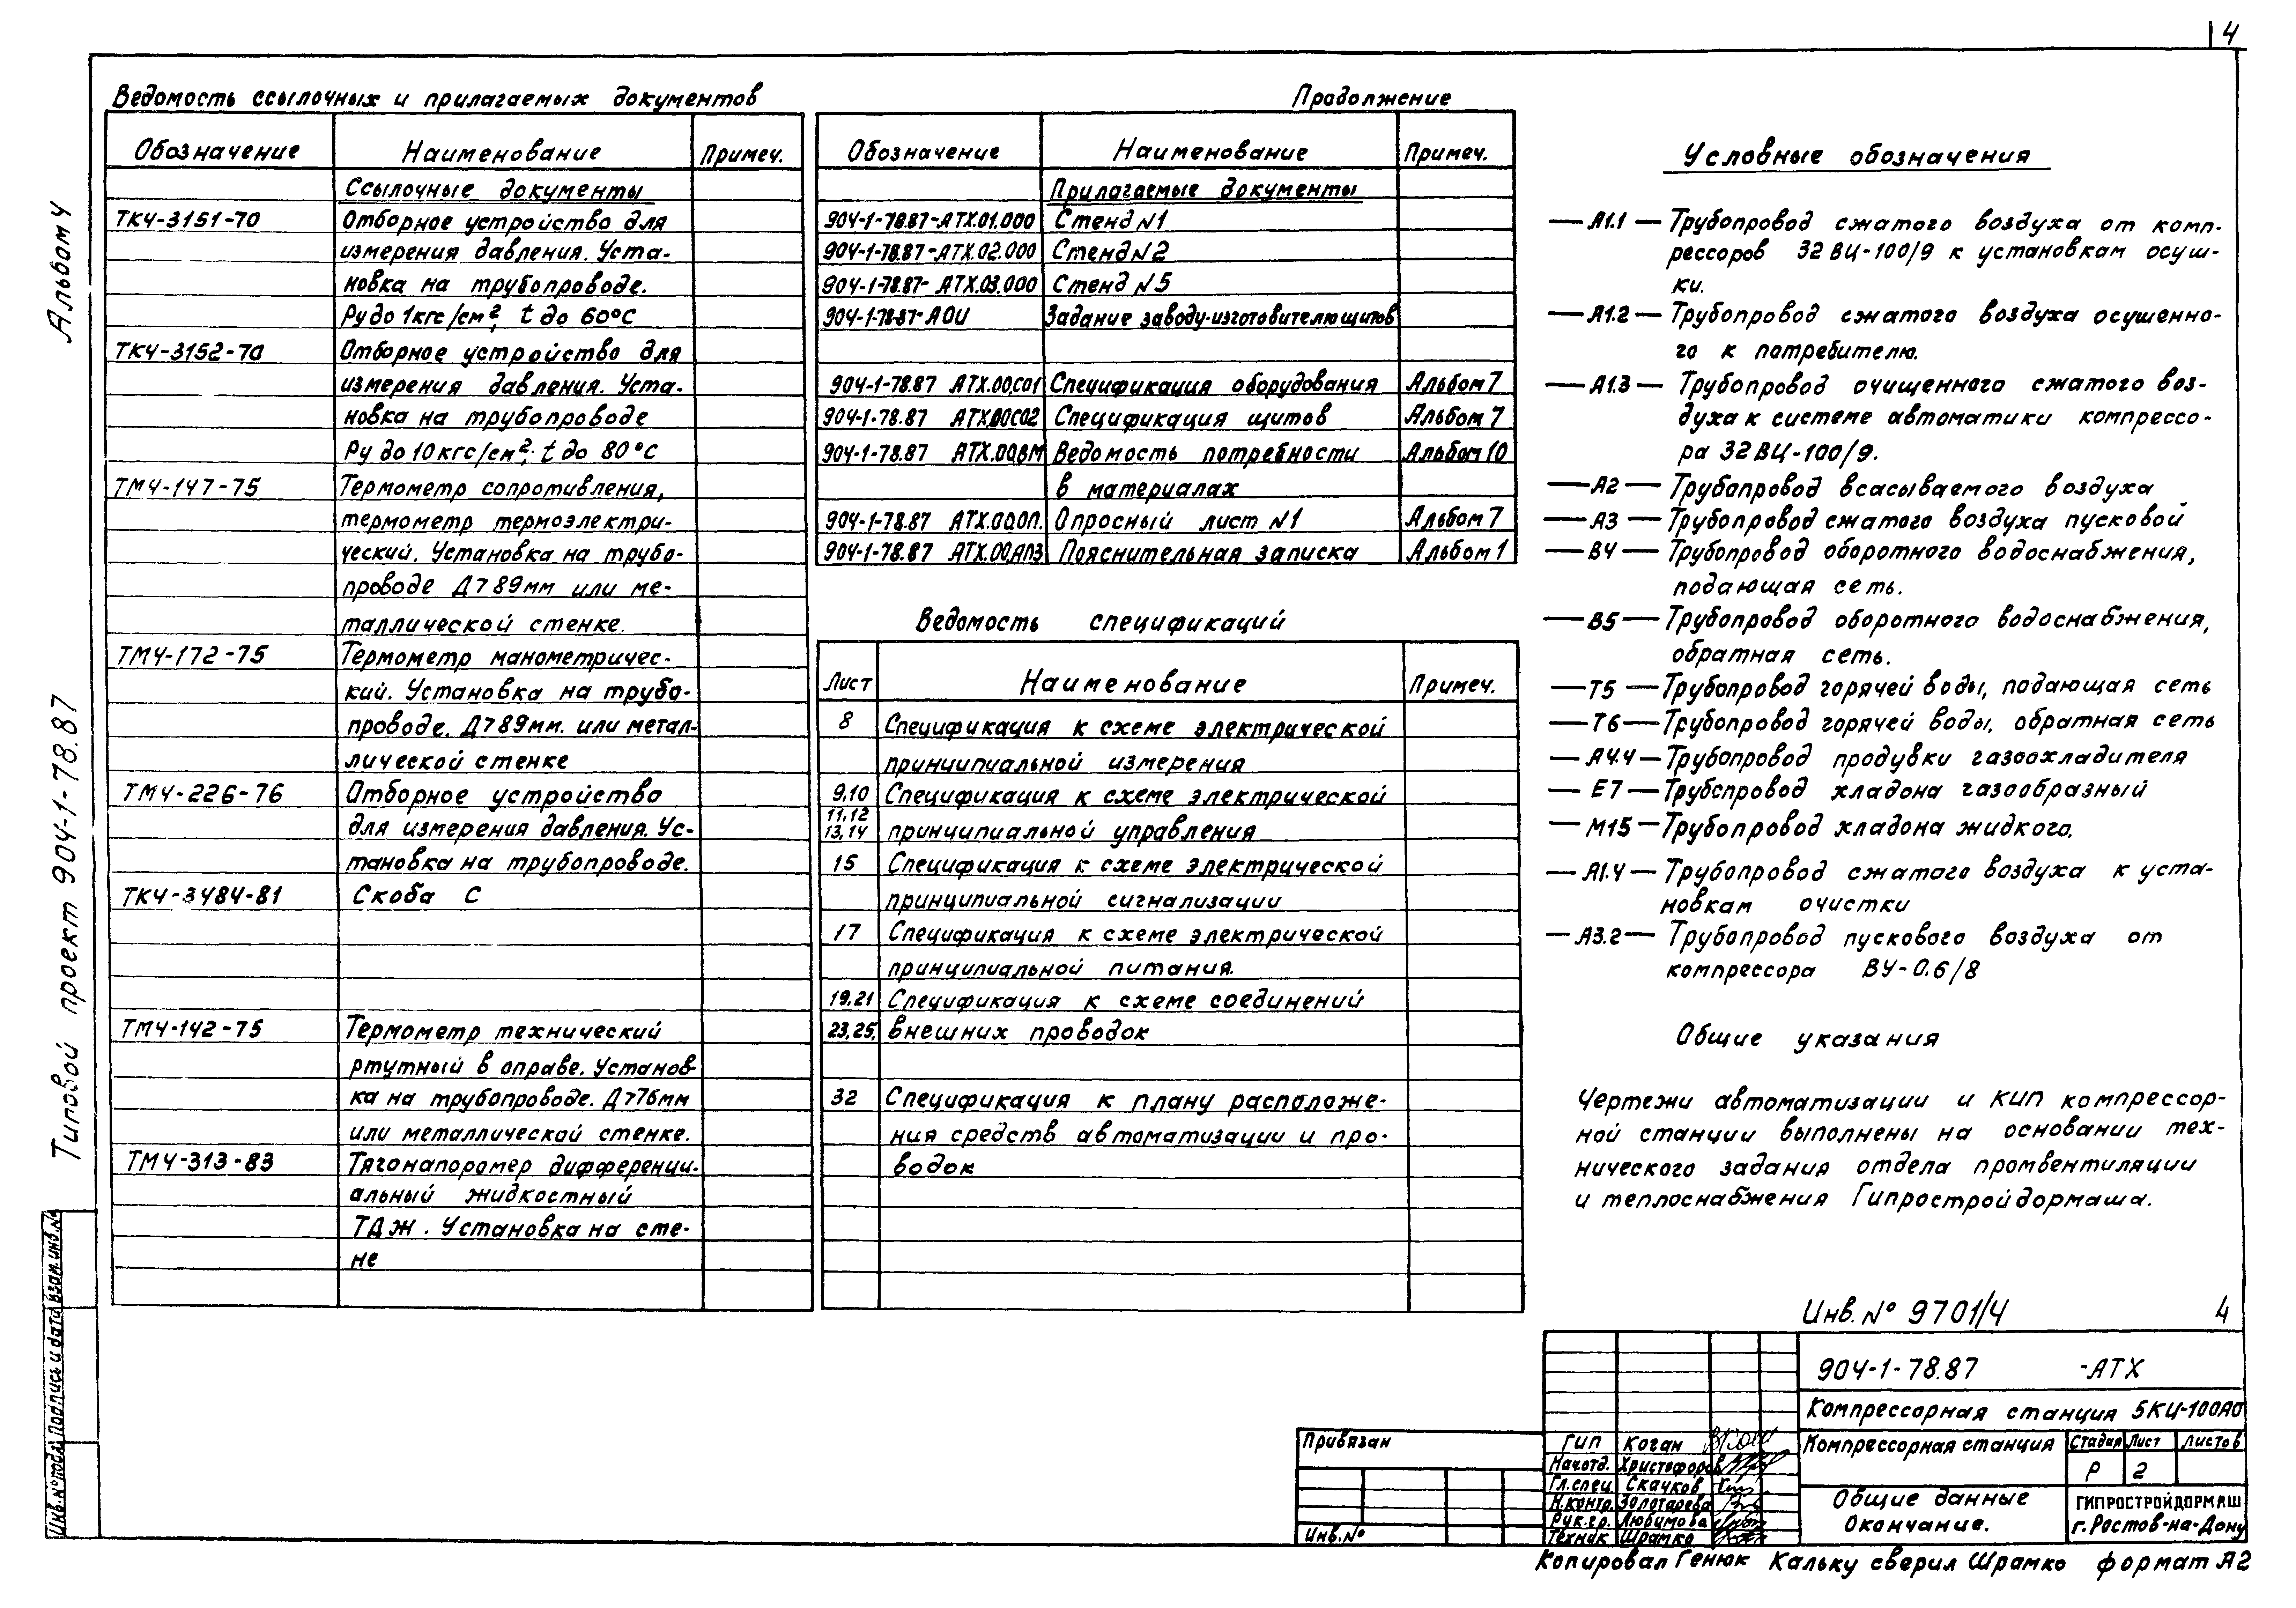 4
Альбом 4
Типовой проект 904-1-78.87
Ведомость ссылочных и прилагаемых документов
Обозначение Наименование Примеч.
Ссылочные документы
ТК4-3151-70 Отборное устройство для
измерения давления. Уста-
новка на трубопроводе.
Ру до 1 кгс/см², t до 60°С
ТК4-3152-70 Отборное устройство для
измерения давления. Уста-
новка на трубопроводе
Ру до 10 кгс/см²; t до 80°С
ТМ4-147-75 Термометр сопротивления,
термометр термоэлектри-
ческий. Установка на трубо-
проводе Д>89мм или ме-
таллической стенке.
ТМ4-172-75 Термометр манометричес-
кий. Установка на трубо-
проводе. Д>89мм. или метал-
лической стенке
ТМ4-226-76 Отборное устройство
для измерения давления. Ус-
тановка на трубопроводе.
ТК4-3484-81 Скоба С
ТМ4-142-75 Термометр технический
ртутный в оправе. Установ-
ка на трубопроводе. Д>76мм
или металлической стенке.
ТМ4-313-83 Тягонапоромер дифференци-
альный жидкостный
ТДЖ. Установка на сте-
не
Продолжение
Обозначение Наименование Примеч.
Прилагаемые документы
904-1-78.87-АТХ.01.000 Стенд N1
904-1-78.87-АТХ.02.000 Стенд N2
904-1-78.87-АТХ.03.000 Стенд N5
904-1-78-87-АОИ Задание заводу-изготовителю щитов
904-1-78.87 АТХ.00.С01 Спецификация оборудования Альбом 7
904-1-78.87 АТХ.00С02 Спецификация щитов Альбом 7
904-1-78.87 АТХ.00.ВМ Ведомость потребности Альбом 10
в материалах
904-1-78.87 АТХ.00.ОП. Опросный лист N1 Альбом 7
904-1-78.87 АТХ.00.АПЗ Пояснительная записка Альбом 1
Ведомость спецификаций
Лист Наименование Примеч.
8 Спецификация к схеме электрической
принципиальной измерения
9,10 Спецификация к схеме электрической
11,12
13,14 принципиальной управления
15 Спецификация к схеме электрической
принципиальной сигнализации
17 Спецификация к схеме электрической
принципиальной питания.
19.21 Спецификация к схеме соединений
23,25, внешних проводок
32 Спецификация к плану расположе-
ния средств автоматизации и про-
водок
Условные обозначения
—А1.1— Трубопровод сжатого воздуха от комп-
рессоров 32 ВЦ-100/9 к установкам осуш-
ки.
—А1.2— Трубопровод сжатого воздуха осушенно-
го к потребителю.
—А1.3— Трубопровод очищенного сжатого воз-
духа к системе автоматики компрессо-
ра 32 ВЦ-100/9.
—А2— Трубопровод всасываемого воздуха
—А3— Трубопровод сжатого воздуха пусковой
—В4— Трубопровод оборотного водоснабжения,
подающая сеть.
—В5— Трубопровод оборотного водоснабжения,
обратная сеть.
—Т5— Трубопровод горячей воды, подающая сеть
—Т6— Трубопровод горячей воды, обратная сеть
—А4.4— Трубопровод продувки газоохладителя
—Е7— Трубопровод хладона газообразный
—М15— Трубопровод хладона жидкого.
—А1.4— Трубопровод сжатого воздуха к уста-
новкам очистки
—А3.2— Трубопровод пускового воздуха от
компрессора ВУ-0.6/8
Общие указания
Чертежи автоматизации и КИП компрессор-
ной станции выполнены на основании тех-
нического задания отдела промвентиляции
и теплоснабжения Гипростройдормаша.
Инв. N° 9701/4 4
904-1-78.87 -АТХ
Компрессорная станция 5КЦ-100АО
Компрессорная станция Стадия Лист Листов
Р 2
Общие данные
Окончание.
ГИПРОСТРОЙДОРМАШ
г. Ростов-на-Дону
Привязан
Инв. N°
ГИП Коган
Нач.отд. Христофоров
Гл.спец. Скачков
Н.контр. Золотарева
Рук.гр. Любимова
Техник Шрамко
Инв.N°подл. Подпись и дата Взам.инв.N°
Копировал Генюк Кальку сверил Шрамко формат А2